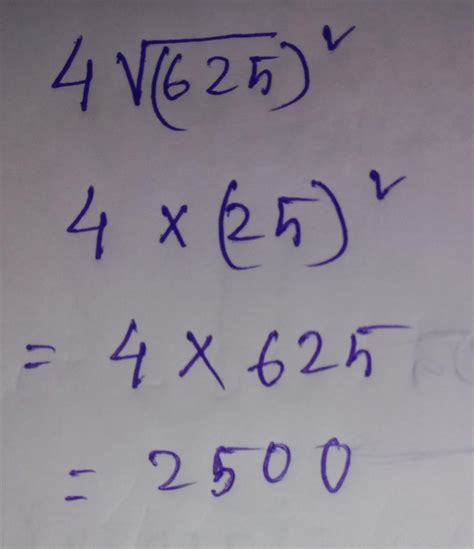 4√(625)²
4 × (25)²
= 4 × 625
= 2500